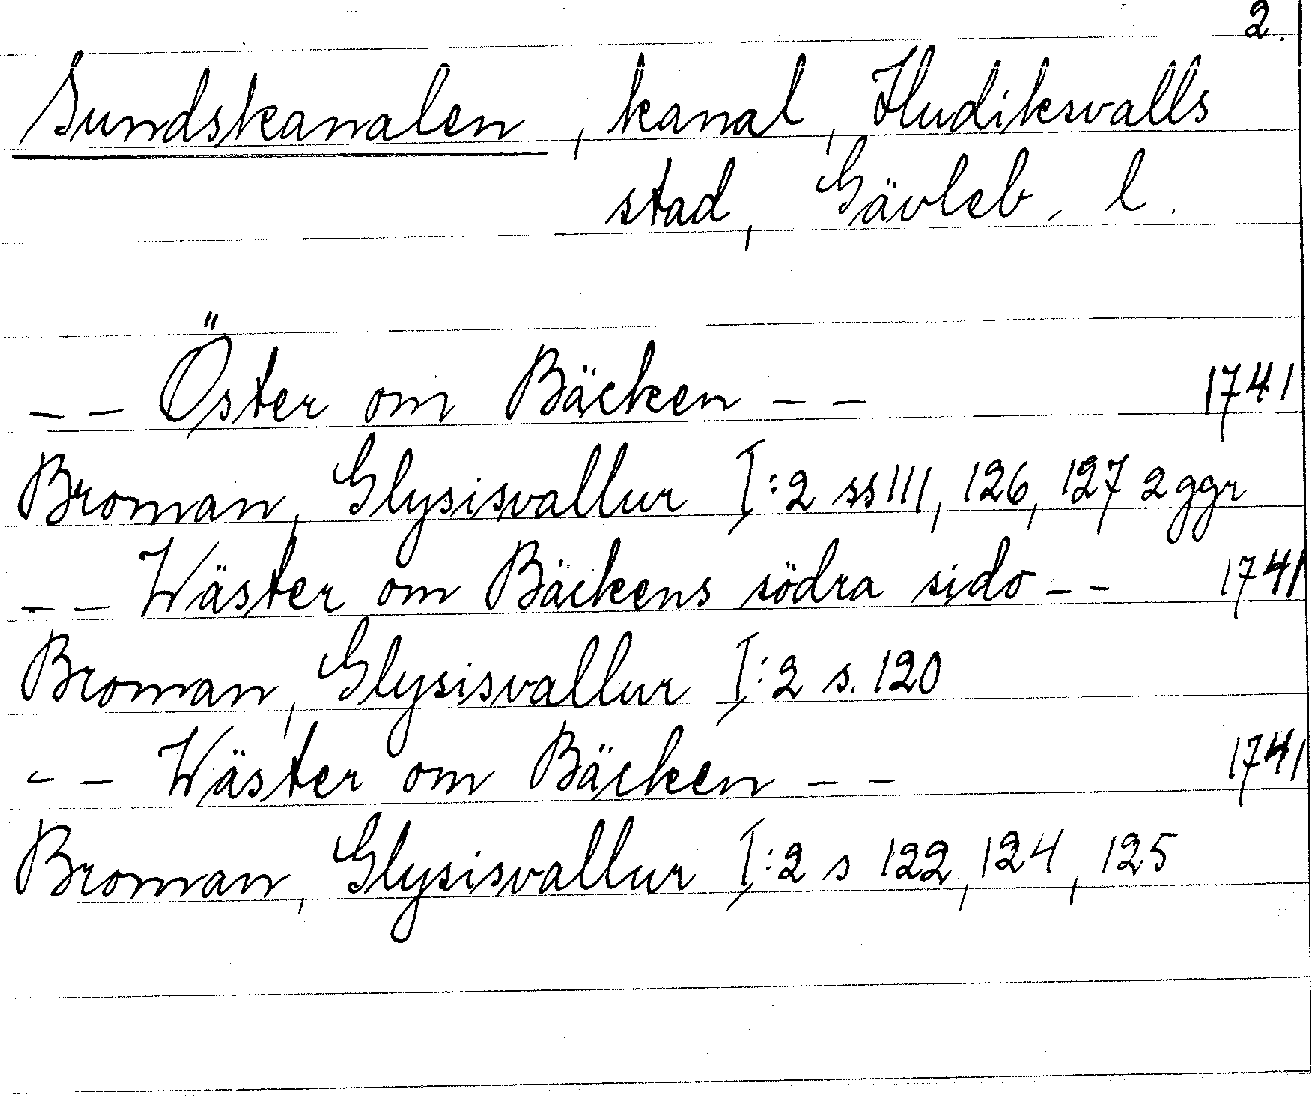 2.
Sundskanalen, kanal, Hudiksvalls
stad, Gävleb. l.
-- Öster om Bäcken -- 1741
Broman, Glysisvallur I:2 ss 111, 126, 127 2 ggr
-- Wäster om Bäckens södra sido -- 1741
Broman, Glysisvallur I:2 s. 120
-- Wäster om Bäcken -- 1741
Broman, Glysisvallur I:2 s 122, 124, 125